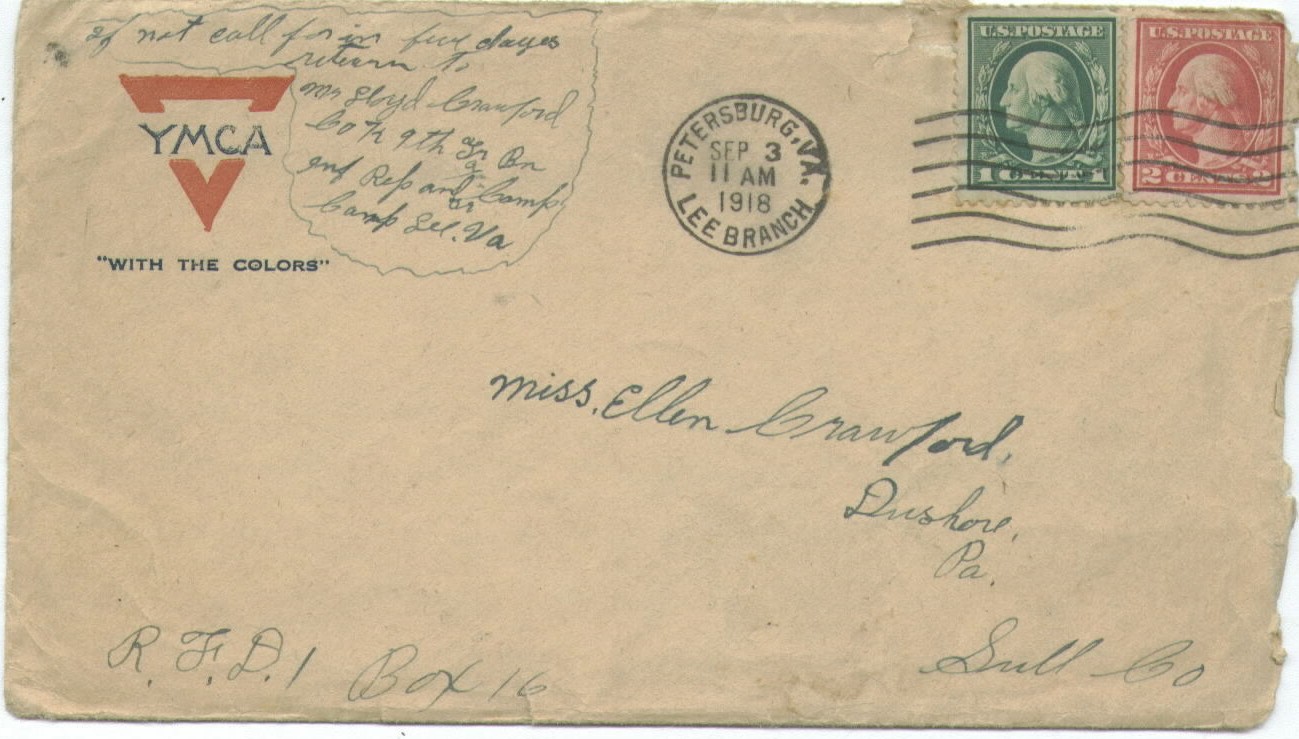 if not call for in five dayes
return to
Mr Lloyd Crawford
Co K 9th Tr Bn
inf Rep and Camp
Camp Lee. Va
YMCA
"WITH THE COLORS"
PETERSBURG, VA.
SEP 3
11 AM
1918
LEE BRANCH
U.S. POSTAGE
1 CENT 1
U.S. POSTAGE
2 CENTS 2
Miss. Ellen Crawford,
Dushore,
Pa.
Sull Co
R. F. D. 1 Box 16